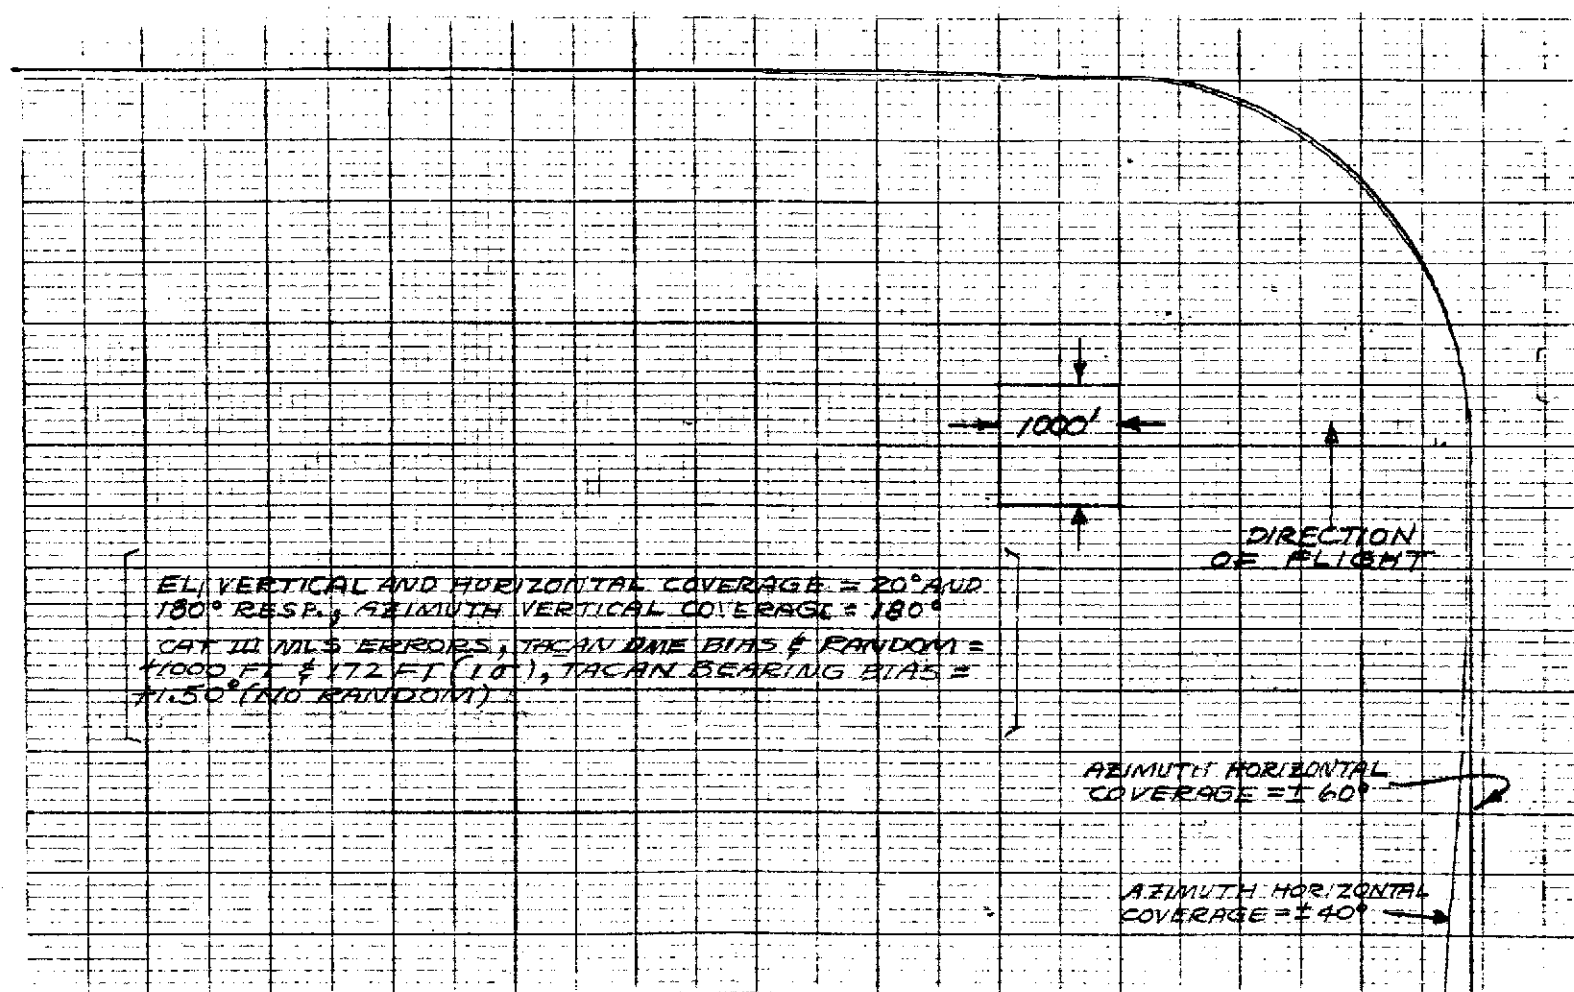 1000'
DIRECTION
OF FLIGHT
EL1 VERTICAL AND HORIZONTAL COVERAGE = 20° AND
180° RESP., AZIMUTH VERTICAL COVERAGE = 180°
CAT III MLS ERRORS, TACAN DME BIAS & RANDOM =
+1000 FT & 172 FT (1σ), TACAN BEARING BIAS =
+1.50° (NO RANDOM)
AZIMUTH HORIZONTAL
COVERAGE = ± 60°
AZIMUTH HORIZONTAL
COVERAGE = ± 40°